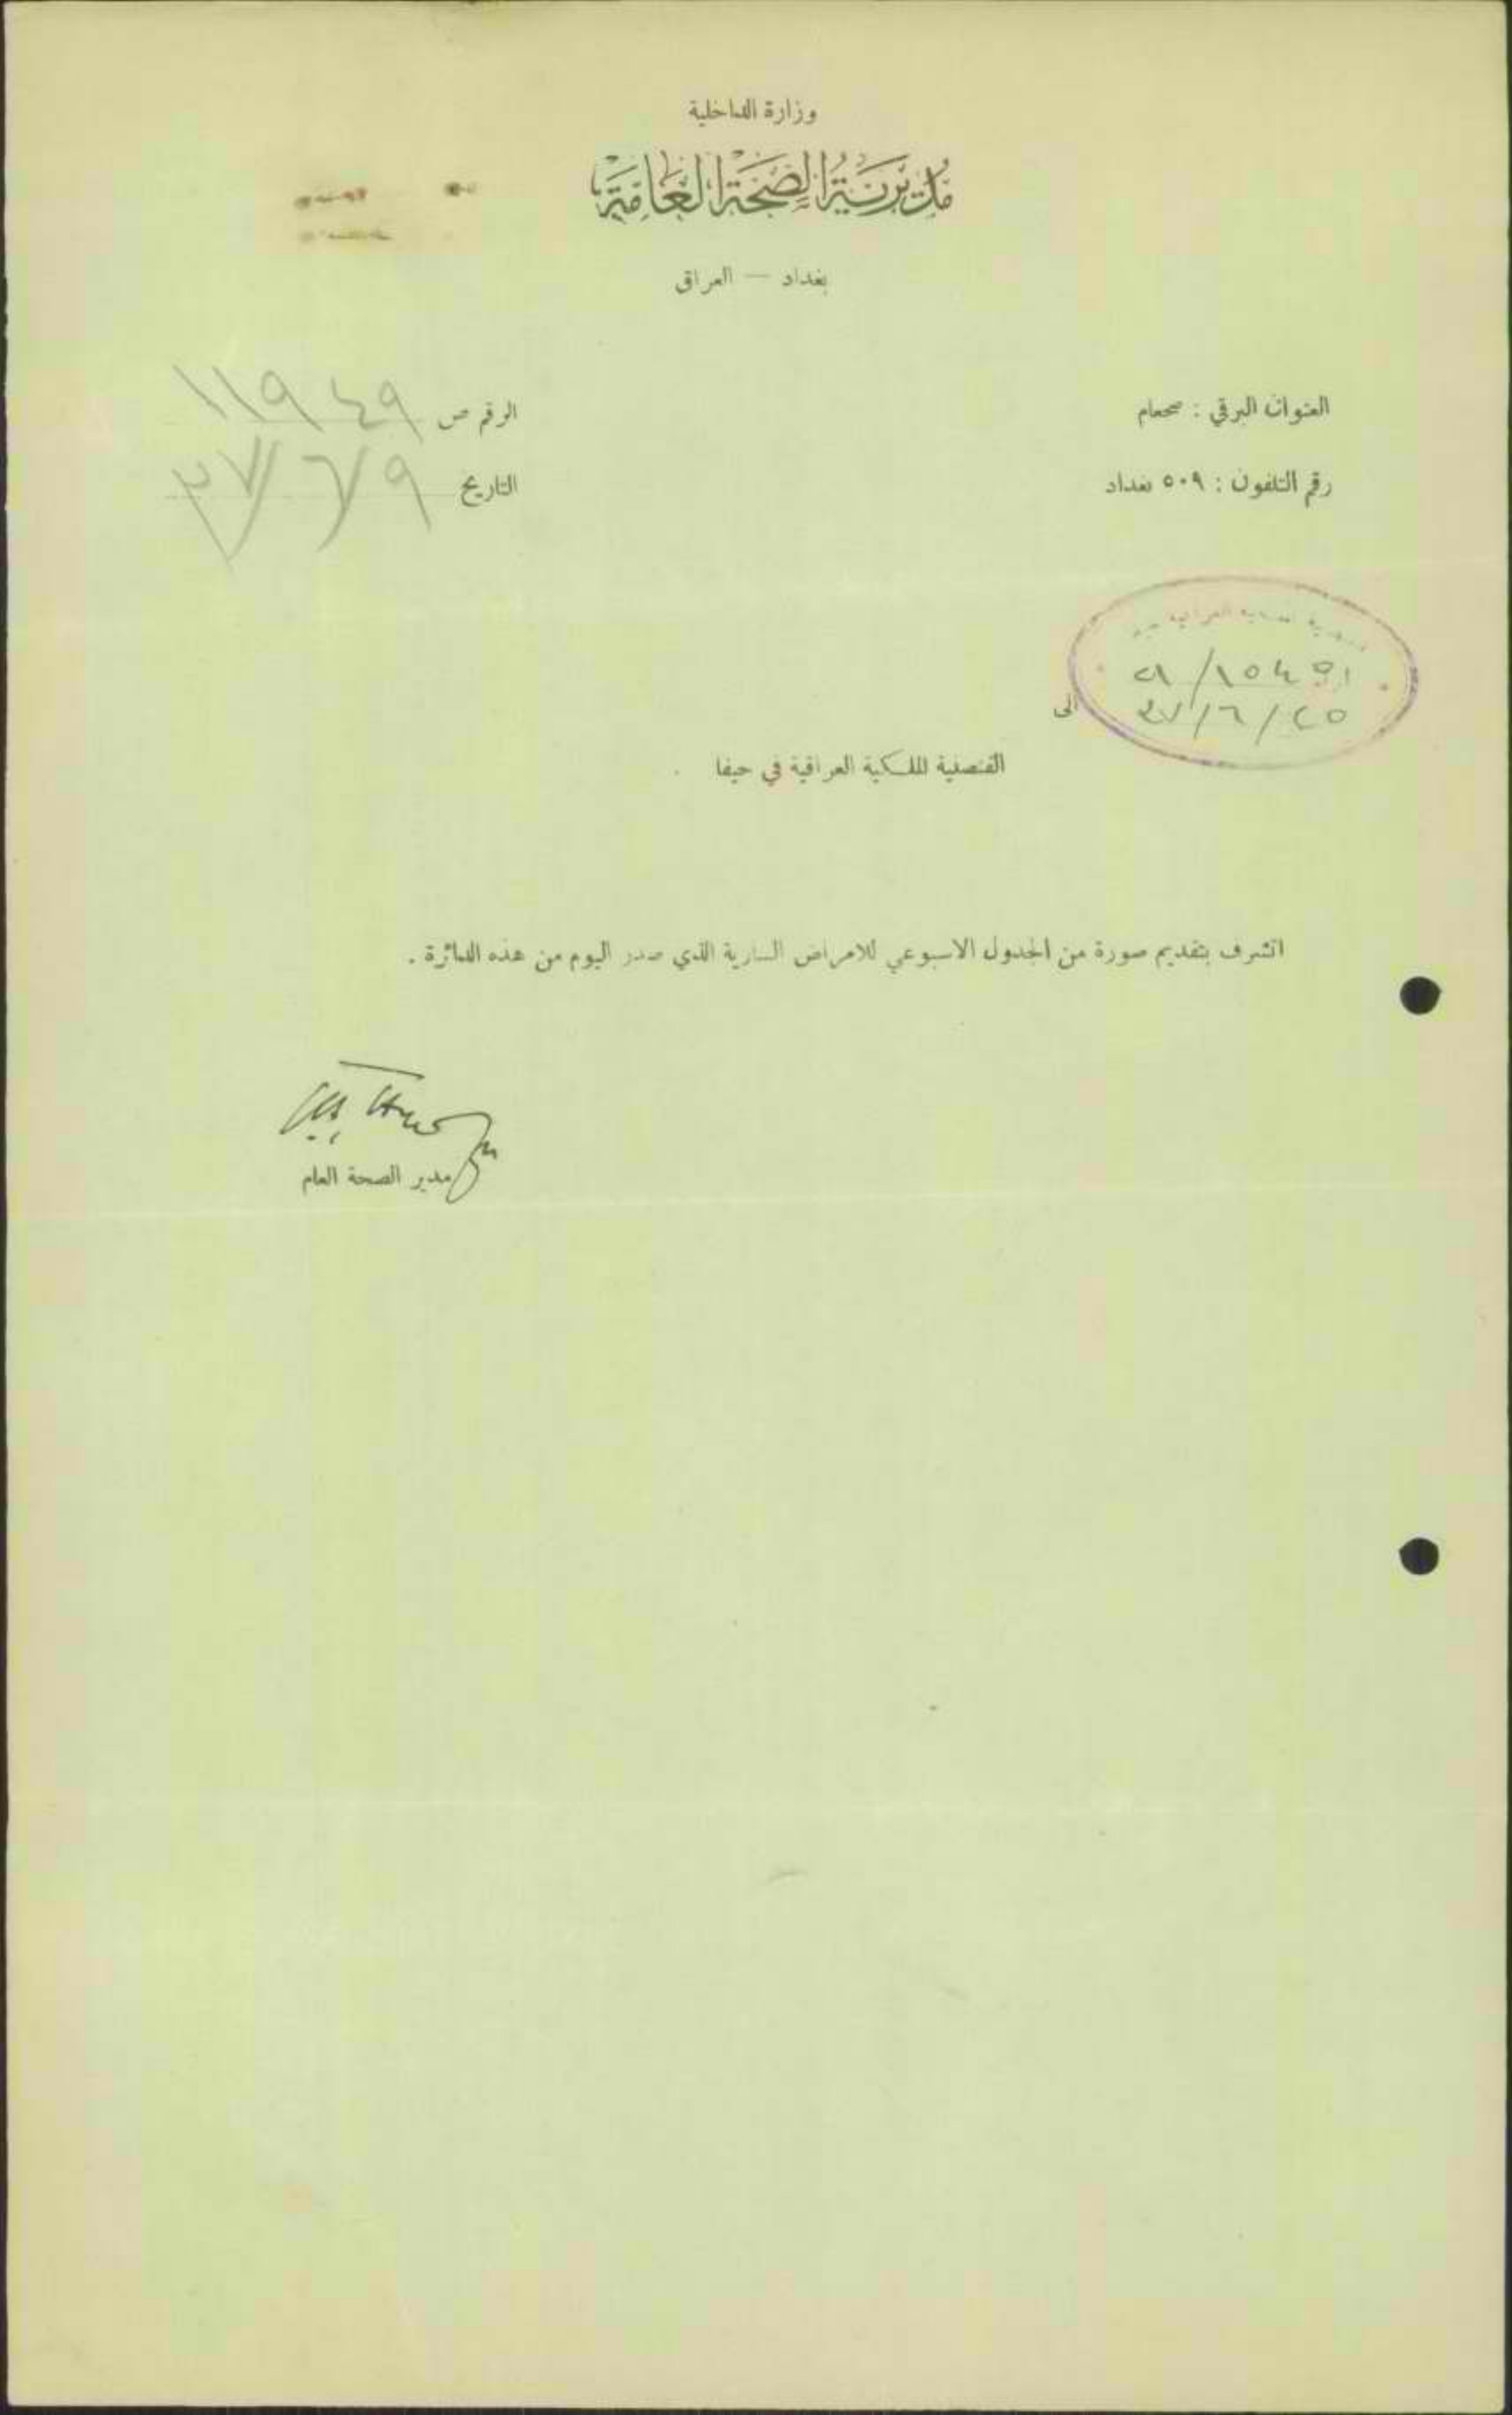 وزارة الداخلية
مديرية الصحة العامة
بغداد — العراق
العنوان البرقي : صحعام
الرقم ص ١١٩٤٩
رقم التلفون : ٥٠٩ بغداد
التاريخ ٣٧/٦/٩
٣٧/٦/٢٥
الى
القنصلية الملكية العراقية في حيفا
اتشرف بتقديم صورة من الجدول الاسبوعي للامراض السارية الذي صدر اليوم من هذه الدائرة .
مدير الصحة العام